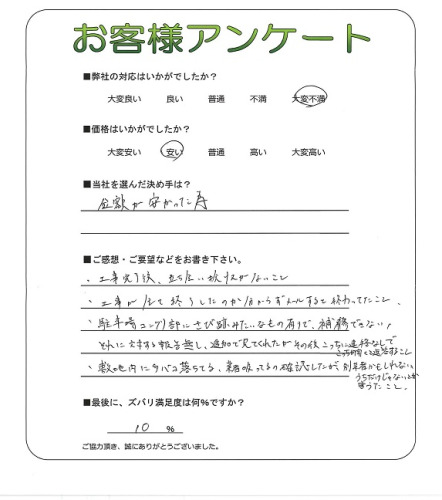 お客様アンケート
■弊社の対応はいかがでしたか?
大変良い 良い 普通 不満 大変不満
■価格はいかがでしたか?
大変安い 安い 普通 高い 大変高い
■当社を選んだ決め手は?
金額が安かった事
■ご感想・ご要望などをお書き下さい。
・工事完了後、立ち会い がないこと
・工事が 終了したのか メールすると終わってたこと、
・駐車場コンクリ部にさび跡みたいなもの有りで、補修できない、
それに対する報告無し、追加で見てくれたがその後こっちに連絡なしで
こっちから すること
・敷地内にタバコ落ちてる、 吸ってるの確認したが、別業者かもしれない、
うちだけじゃないとか
言うたこと。
■最後に、ズバリ満足度は何%ですか?
10 %
ご協力頂き、誠にありがとうございました。